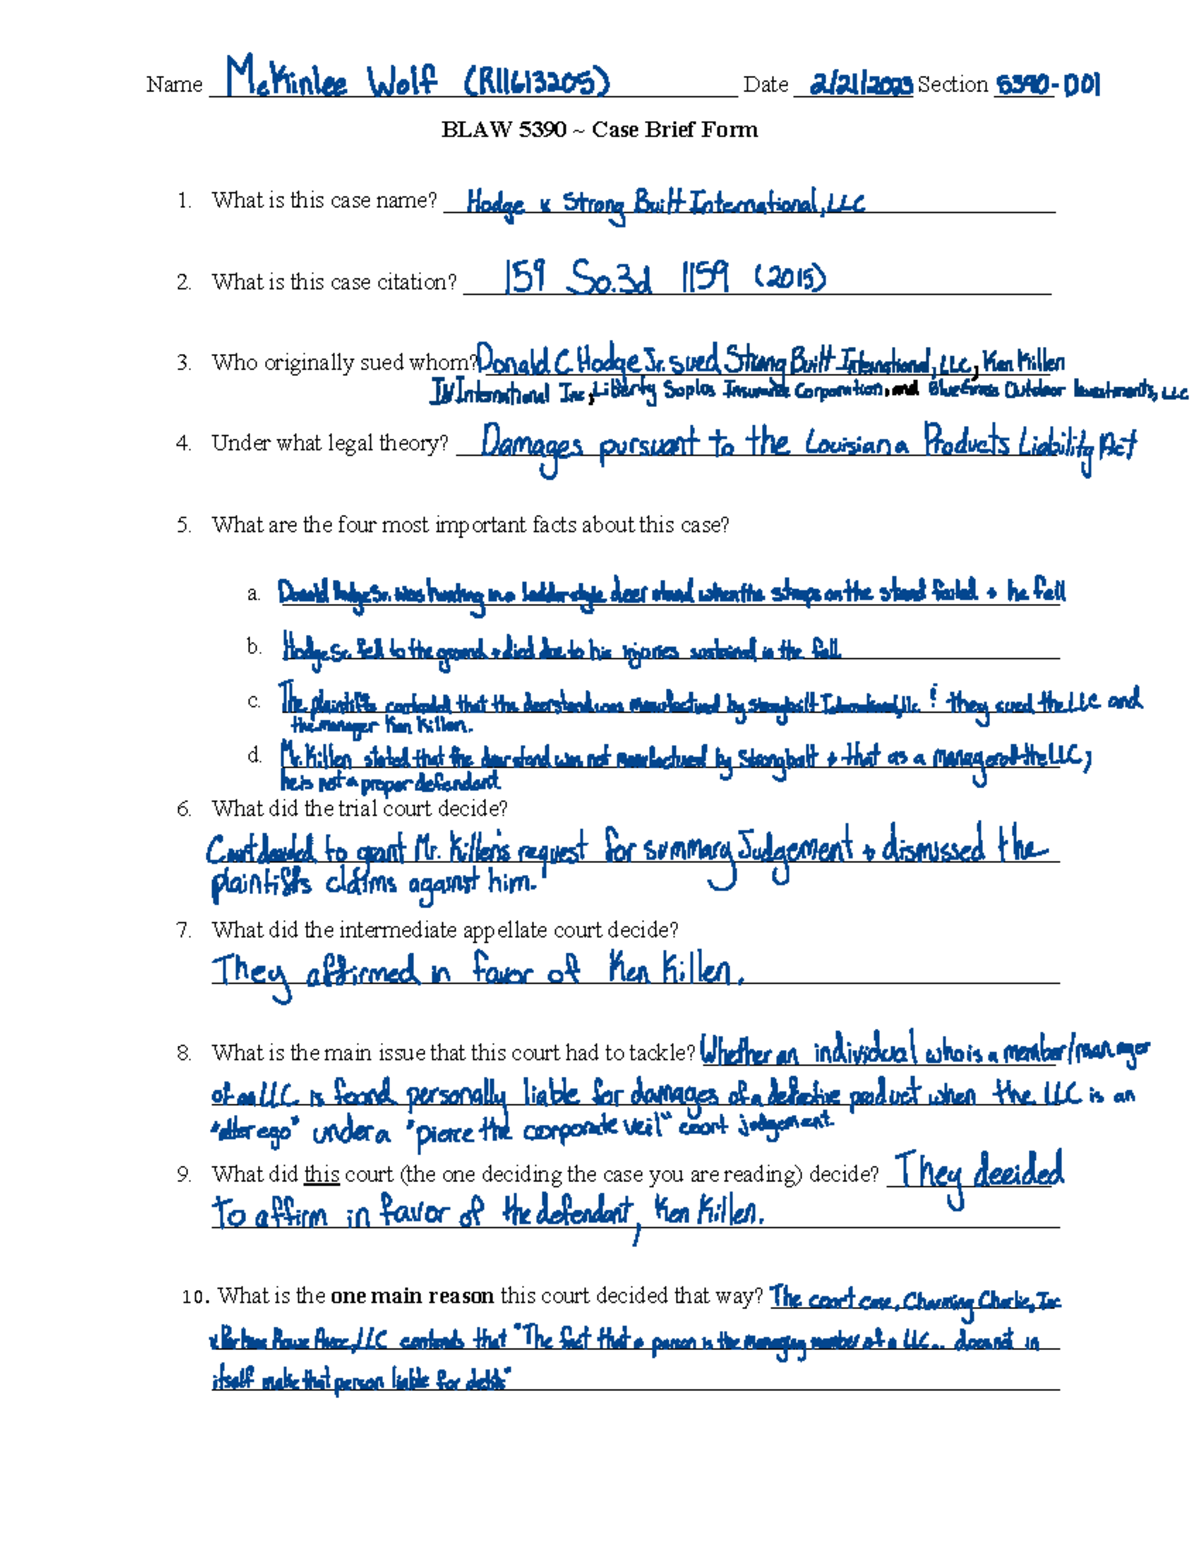 Name McKinlee Wolf (R11613205) Date 2/21/2023 Section 5390-D01
BLAW 5390 ~ Case Brief Form
1. What is this case name? Hodge v. Strong Built International, LLC
2. What is this case citation? 159 So.3d 1159 (2015)
3. Who originally sued whom? Donald C Hodge Jr. sued Strong Built International, LLC, Ken Killen
International Inc, Liberty Insurance Corporation, and Outdoor Investments, LLC
4. Under what legal theory? Damages pursuant to the Louisiana Products Liability Act
5. What are the four most important facts about this case?
a. Donald Hodge Sr. was hunting in a ladder style deer stand when the straps on the stand failed + he fell
b. Hodge Sr. fell to the ground + died due to his injuries sustained in the fall
c. The plaintiffs contended that the deerstand was manufactured by strongbuilt International, llc & they sued the LLC and
the manager Ken Killen.
d. Mr. Killen stated that the deer stand was not manufactured by Strongbuilt + that as a manager of the LLC,
he is not a proper defendant
6. What did the trial court decide?
Court decided to grant Mr. Killen's request for summary Judgement + dismissed the
plaintiffs claims against him.
7. What did the intermediate appellate court decide?
They affirmed in favor of Ken Killen.
8. What is the main issue that this court had to tackle? Whether an individual who is a member/manager
of an LLC is found personally liable for damages of a defective product when the LLC is an
"alter ego" under a "pierce the corporate veil" court judgement.
9. What did this court (the one deciding the case you are reading) decide? They decided
to affirm in favor of the defendant, Ken Killen.
10. What is the one main reason this court decided that way? The court case, Charming Charlie, Inc
v. Perkins Rowe Assoc, LLC contends that "The fact that a person is the managing member of a LLC... does not in
itself make that person liable for debts"